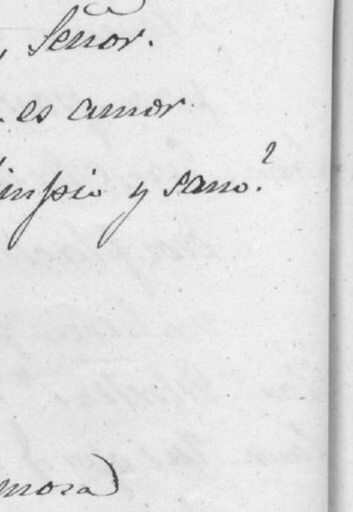 y Señor.
es amor.
limpio y sano?
mosa)